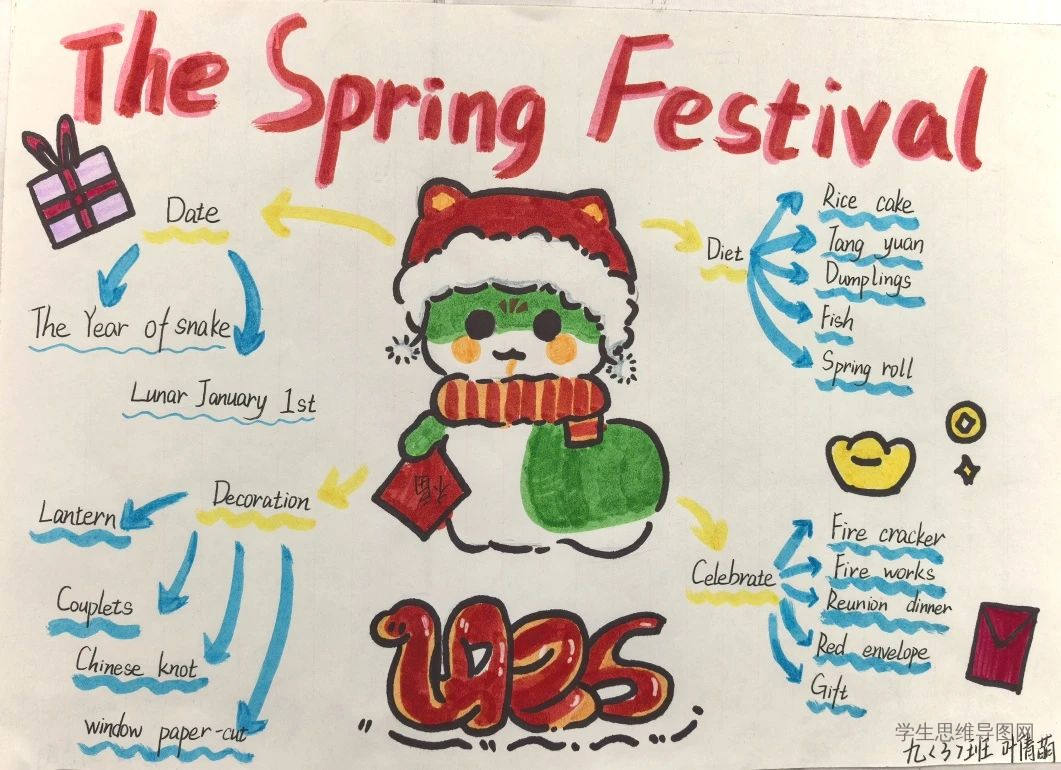 The Spring Festival
Date
The Year of snake
Lunar January 1st
Diet
Rice cake
Tang yuan
Dumplings
Fish
Spring roll
福
Decoration
Lantern
Couplets
Chinese knot
window paper-cut
Celebrate
Fire cracker
Fire works
Reunion dinner
Red envelope
Gift
学生思维导图网
九(3)班 叶倩萌